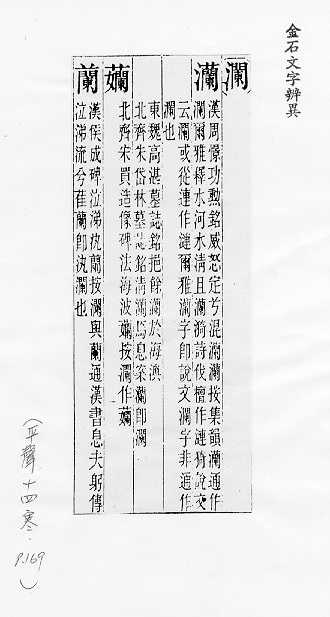 金石文字辨異
瀾
灡
漢周憬功勲銘威怒定兮混灡灡按集韻灡通作
瀾爾雅釋水河水清且灡漪詩伐檀作漣猗說文
云瀾或從連作漣爾雅灡字即說文瀾字非通作
瀾也
東魏高湛墓誌銘挹餘灡於海澳
北齊朱岱林墓誌銘清灡馬息穼灡即瀾
孄
北齊宋買造像碑法海波孄按瀾作孄
蘭
漢侯成碑泣涕汍蘭按瀾與蘭通漢書息夫躬傳
泣涕流兮萑蘭即汍瀾也
(平聲十四寒. P.169)